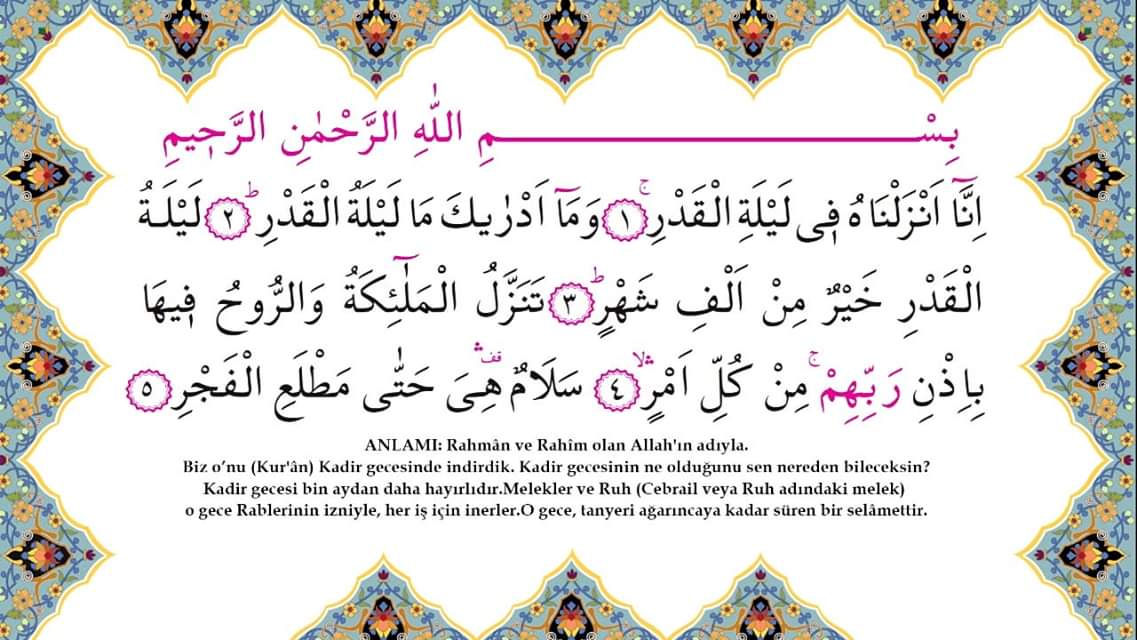 بِسْمِ اللّٰهِ الرَّحْمٰنِ الرَّح۪يمِ
اِنَّٓا اَنْزَلْنَاهُ ف۪ي لَيْلَةِ الْقَدْرِۚ ﴿١﴾ وَمَٓا اَدْرٰيكَ مَا لَيْلَةُ الْقَدْرِۜ ﴿٢﴾ لَيْلَةُ
الْقَدْرِ خَيْرٌ مِنْ اَلْفِ شَهْرٍۜ ﴿٣﴾ تَنَزَّلُ الْمَلٰٓئِكَةُ وَالرُّوحُ ف۪يهَا
بِاِذْنِ رَبِّهِمْۚ مِنْ كُلِّ اَمْرٍۙۛ ﴿٤﴾ سَلَامٌ۠ۛ هِيَ حَتّٰى مَطْلَعِ الْفَجْرِ ﴿٥﴾
ANLAMI: Rahmân ve Rahîm olan Allah'ın adıyla.
Biz o’nu (Kur'ân) Kadir gecesinde indirdik. Kadir gecesinin ne olduğunu sen nereden bileceksin?
Kadir gecesi bin aydan daha hayırlıdır.Melekler ve Ruh (Cebrail veya Ruh adındaki melek)
o gece Rablerinin izniyle, her iş için inerler.O gece, tanyeri ağarıncaya kadar süren bir selâmettir.